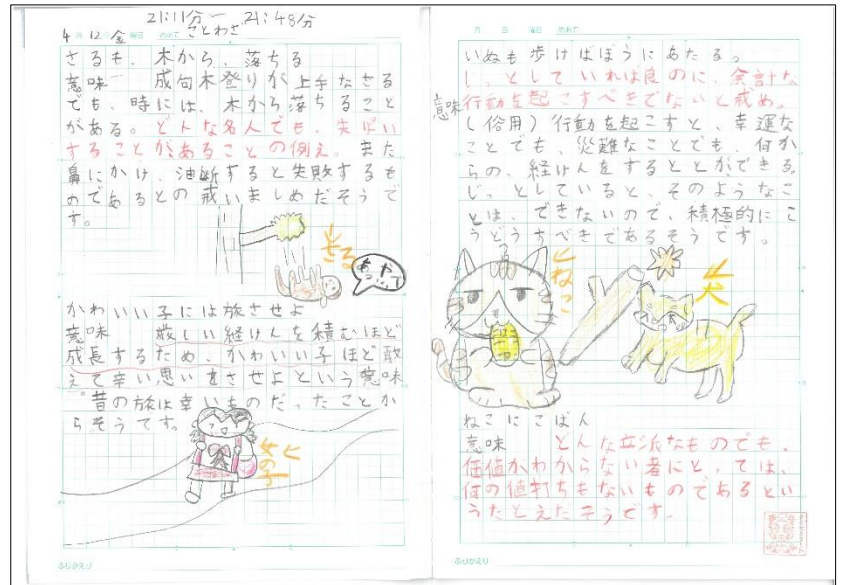 21:11分ー21:48分
4月12日金曜日 めあて ことわざ
さるも、木から、落ちる
意味 成句木登りが上手なさる
でも、時には、木から落ちること
がある。どんな名人でも、失ぱい
することがあることの例え。また
鼻にかけ、油断すると失敗するも
のであるとの戒いましめだそうで
す。
さる
かわいい子には旅させよ
意味 厳しい経けんを積むほど
成長するため、かわいい子ほど敢
えて辛い思いをさせよという意味
。昔の旅は辛いものだったことか
らそうです。
女の子
ふりかえり
月 日 曜日 めあて
いぬも歩けばぼうにあたる。
じっとしていれば良のに、余計な
意味 行動を起こすべきでないと戒め。
(俗用)行動を起こすと、幸運な
ことでも、災難なことでも、何か
らの、経けんをするととができる。
じっとしていると、そのようなこ
とは、できないので、積極的にこ
うどうすべきであるそうです。
ねこ
犬
ねこにこばん
意味 どんな立派なものでも、
価値かわからない者にとっては、
何の値打ちもないものであるとい
うたとえだそうです。
ふりかえり